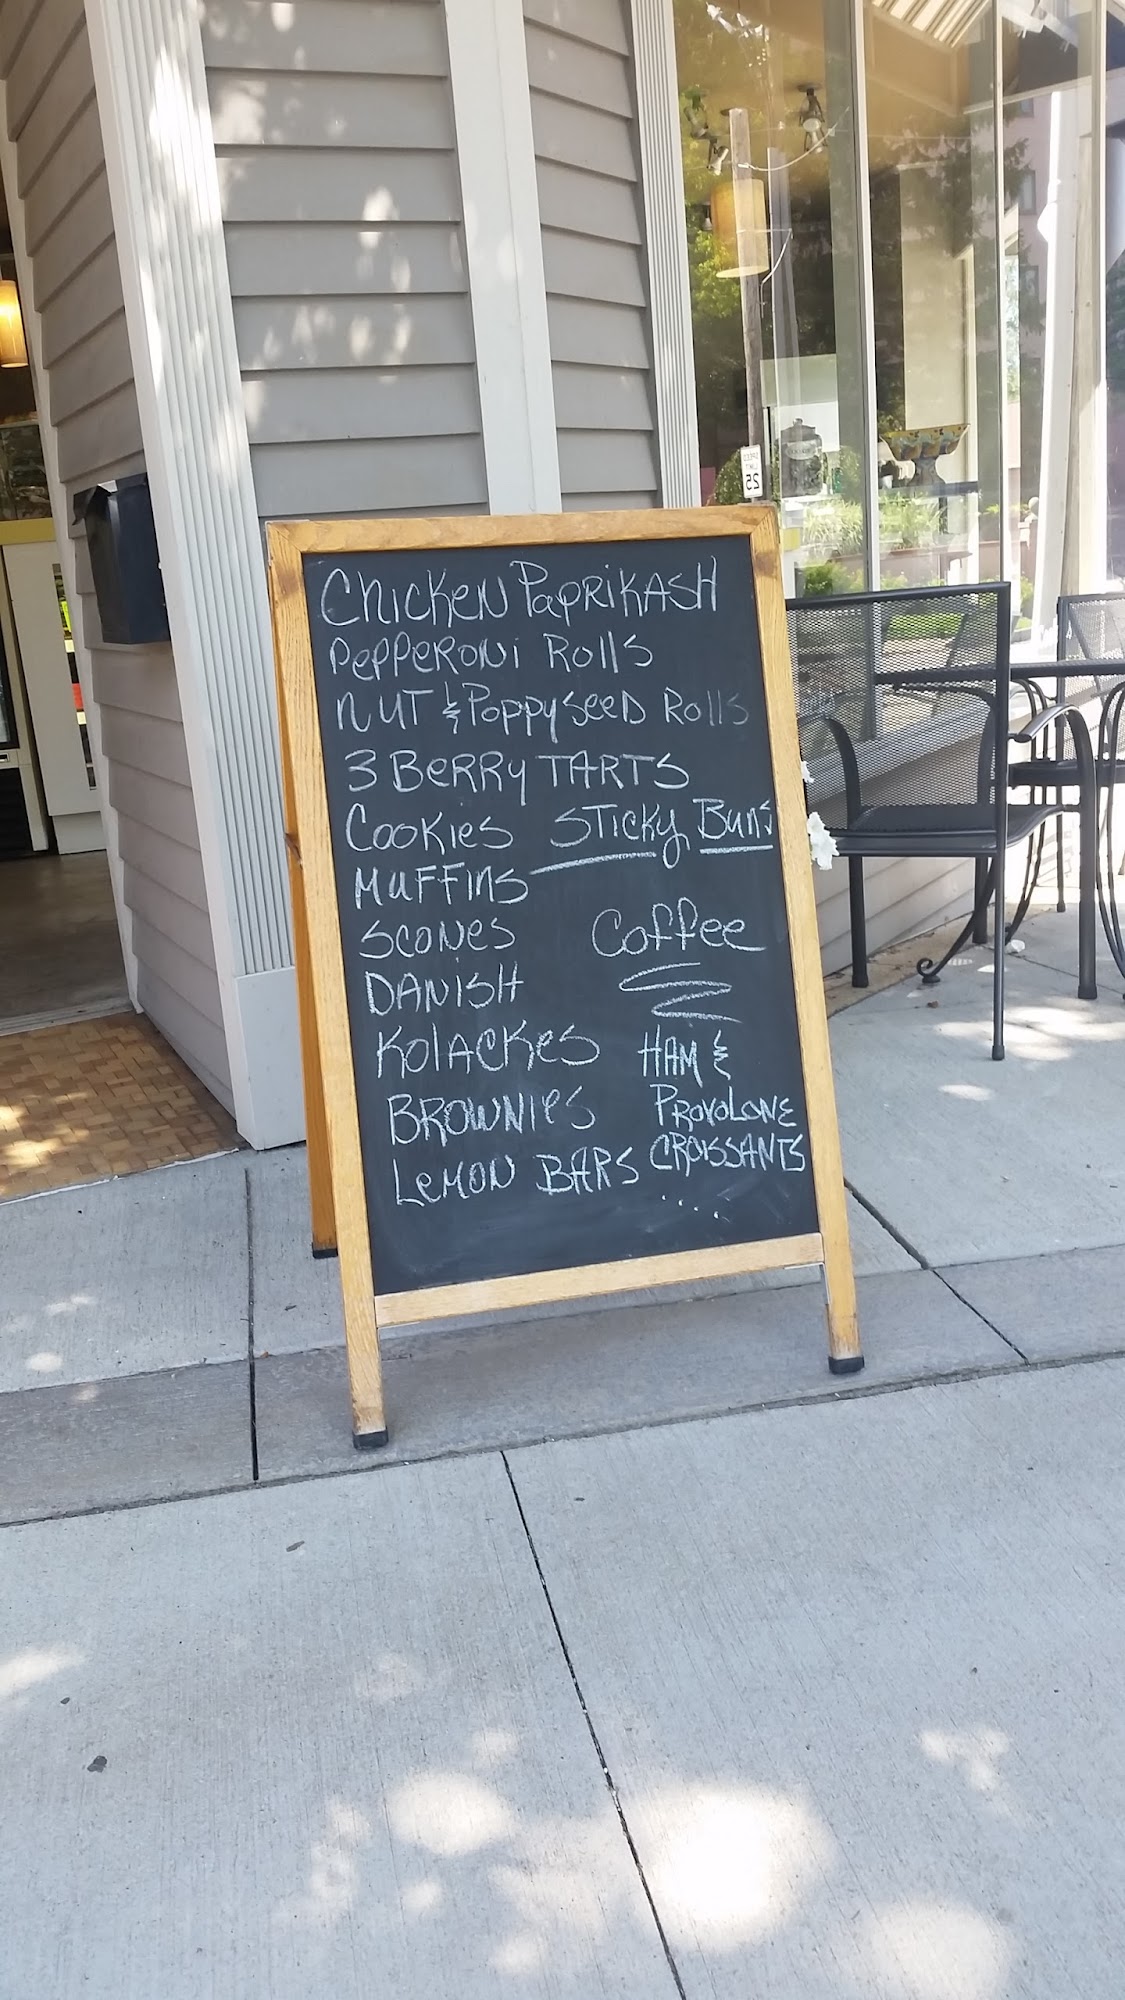 Chicken Paprikash
Pepperoni Rolls
Nut & Poppyseed Rolls
3 Berry Tarts
Cookies Sticky Buns
Muffins
Scones Coffee
Danish
Kolackes Ham &
Brownies Provolone
Lemon Bars Croissants
....
SPEED
LIMIT
25